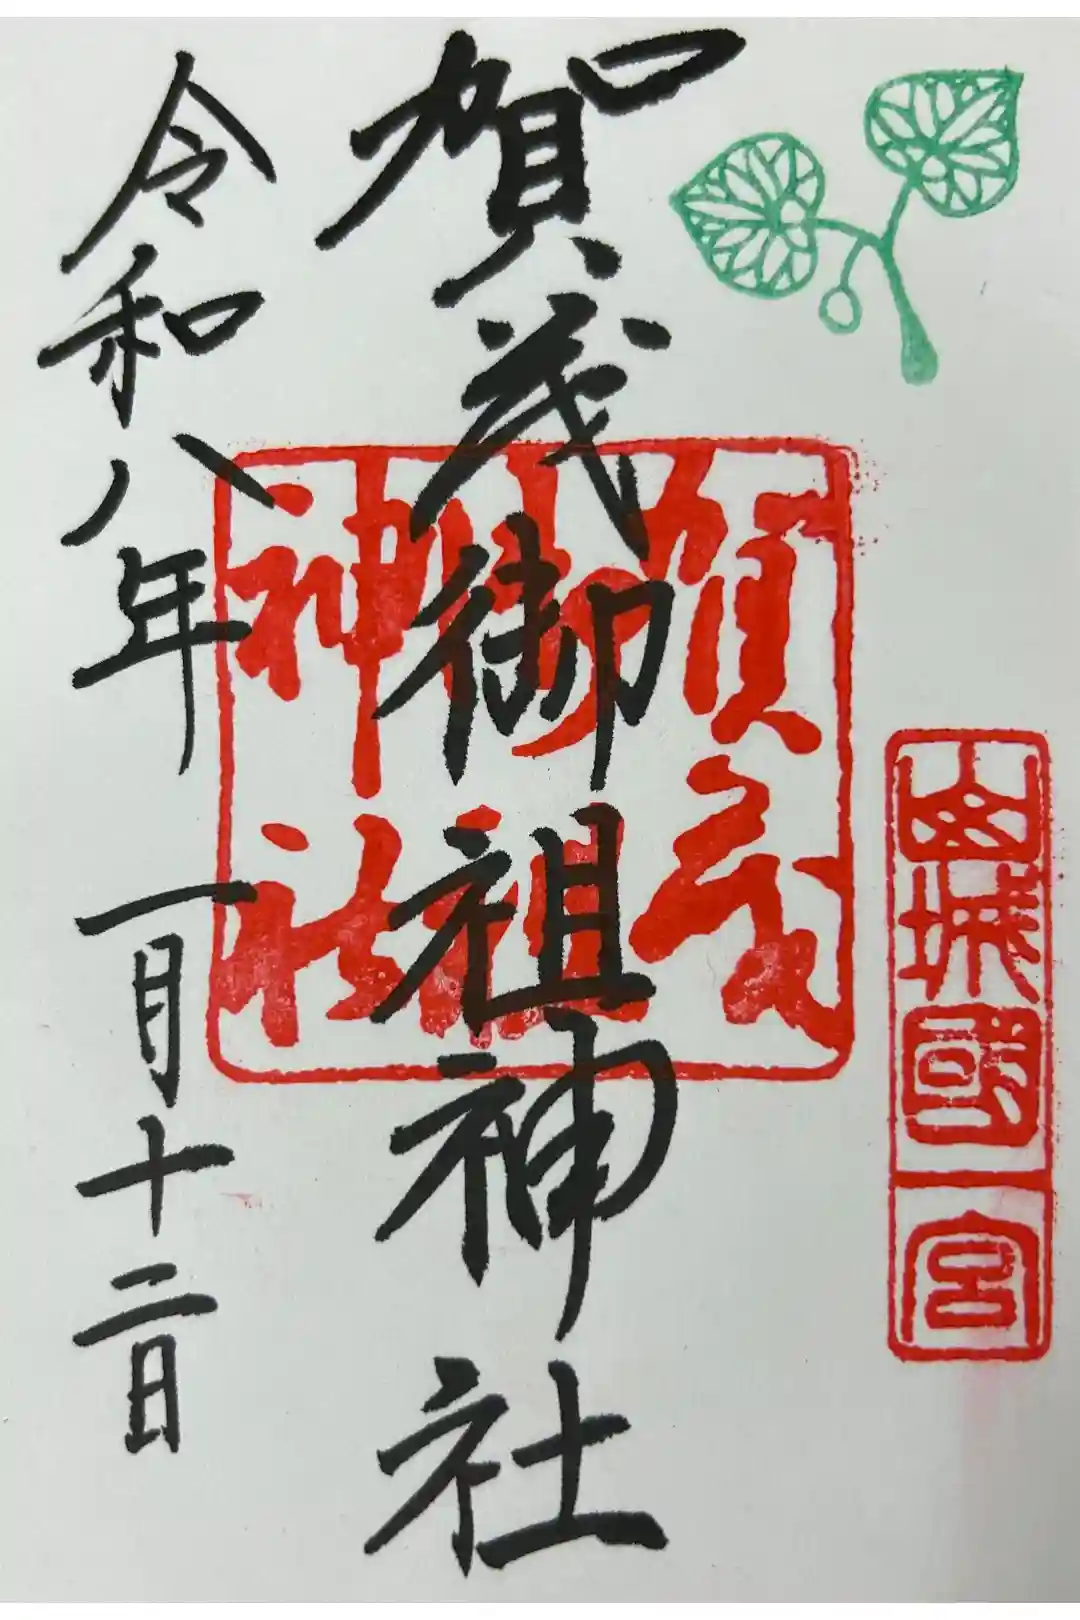 山城國一宮
賀茂御祖神社
賀茂
御祖
神社
令和八年 一月十二日